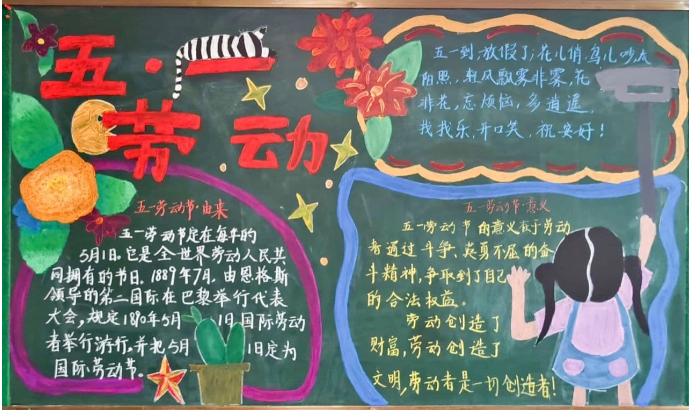 五·一
劳动
五一到,放假了;花儿俏,鸟儿吵,太
阳照,轻风飘,雾非雾,花
非花,忘烦恼,多逍遥,
找找乐,开口笑,祝安好!
五一劳动节·由来
五一劳动节定在每年的
5月1日。它是全世界劳动人民共
同拥有的节日。1889年7月,由恩格斯
领导的第二国际在巴黎举行代表
大会,规定1890年5月1日国际劳动
者举行游行,并把5月1日定为
国际劳动节。
五一劳动节·意义
五一劳动节的意义在于劳动
者通过斗争、英勇不屈的奋
斗精神,争取到了自己
的合法权益。
劳动创造了
财富,劳动创造了
文明,劳动者是一切创造者!